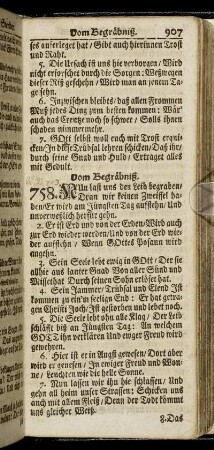 Vom Begräbniß. 907
ses auferleget hat / Gibt auch hierinnen Trost
und Raht.
5. Die Ursach ist uns hie verborgen / Wird
nicht erforschet durch die Sorgen: Weßwegen
dieser Riß geschehn / Wird man an jenem Ta-
ge sehn.
6. Inzwischen bleibets / daß allen Frommen
Muß jedes Ding zum besten kommen: Wär'
auch das Creutze noch so schwer / Solls ihnen
schaden nimmermehr.
7. GOtt selbst woll euch mit Trost erqui-
cken / In dieser Trübsal lehren schicken / Daß ihr
durch seine Gnad und Huld / Ertraget alles
mit Gedult.
Vom Begräbniß.
758. NUn last uns den Leib begraben /
Dran wir keinen Zweiffel ha-
ben / Er wird am Jüngsten Tag auffstehn / Und
unverweßlich herfür gehn.
2. Er ist Erd und von der Erden / Wird auch
zur Erd wieder werden / Und von der Erd wie-
der auffstehn / Wenn GOttes Posaun wird
angehn.
3. Sein Seele lebt ewig in GOtt / Der sie
allhie aus lauter Gnad Von aller Sünd und
Missethat Durch seinen Sohn erlöset hat.
4. Sein Jammer / Trübsal und Elend Ist
kommen zu ein'm seeligen End: Er hat getra-
gen Christi Joch / Ist gestorben und lebet noch.
5. Die Seele lebt ohn alle Klag / Der Leib
schläfft biß an Jüngsten Tag: An welchem
GOTT ihn verklären Und ewiger Freud wird
gewehren.
6. Hier ist er in Angst gewesen / Dort aber
wird er genesen / In ewiger Freud und Won-
ne / Leuchten wie die helle Sonne.
7. Nun lassen wir ihn hie schlaffen / Und
gehn all heim unser Strassen: Schicken uns
auch mit allem Fleiß / Denn der Todt kommt
uns gleicher Weiß.
8. Das